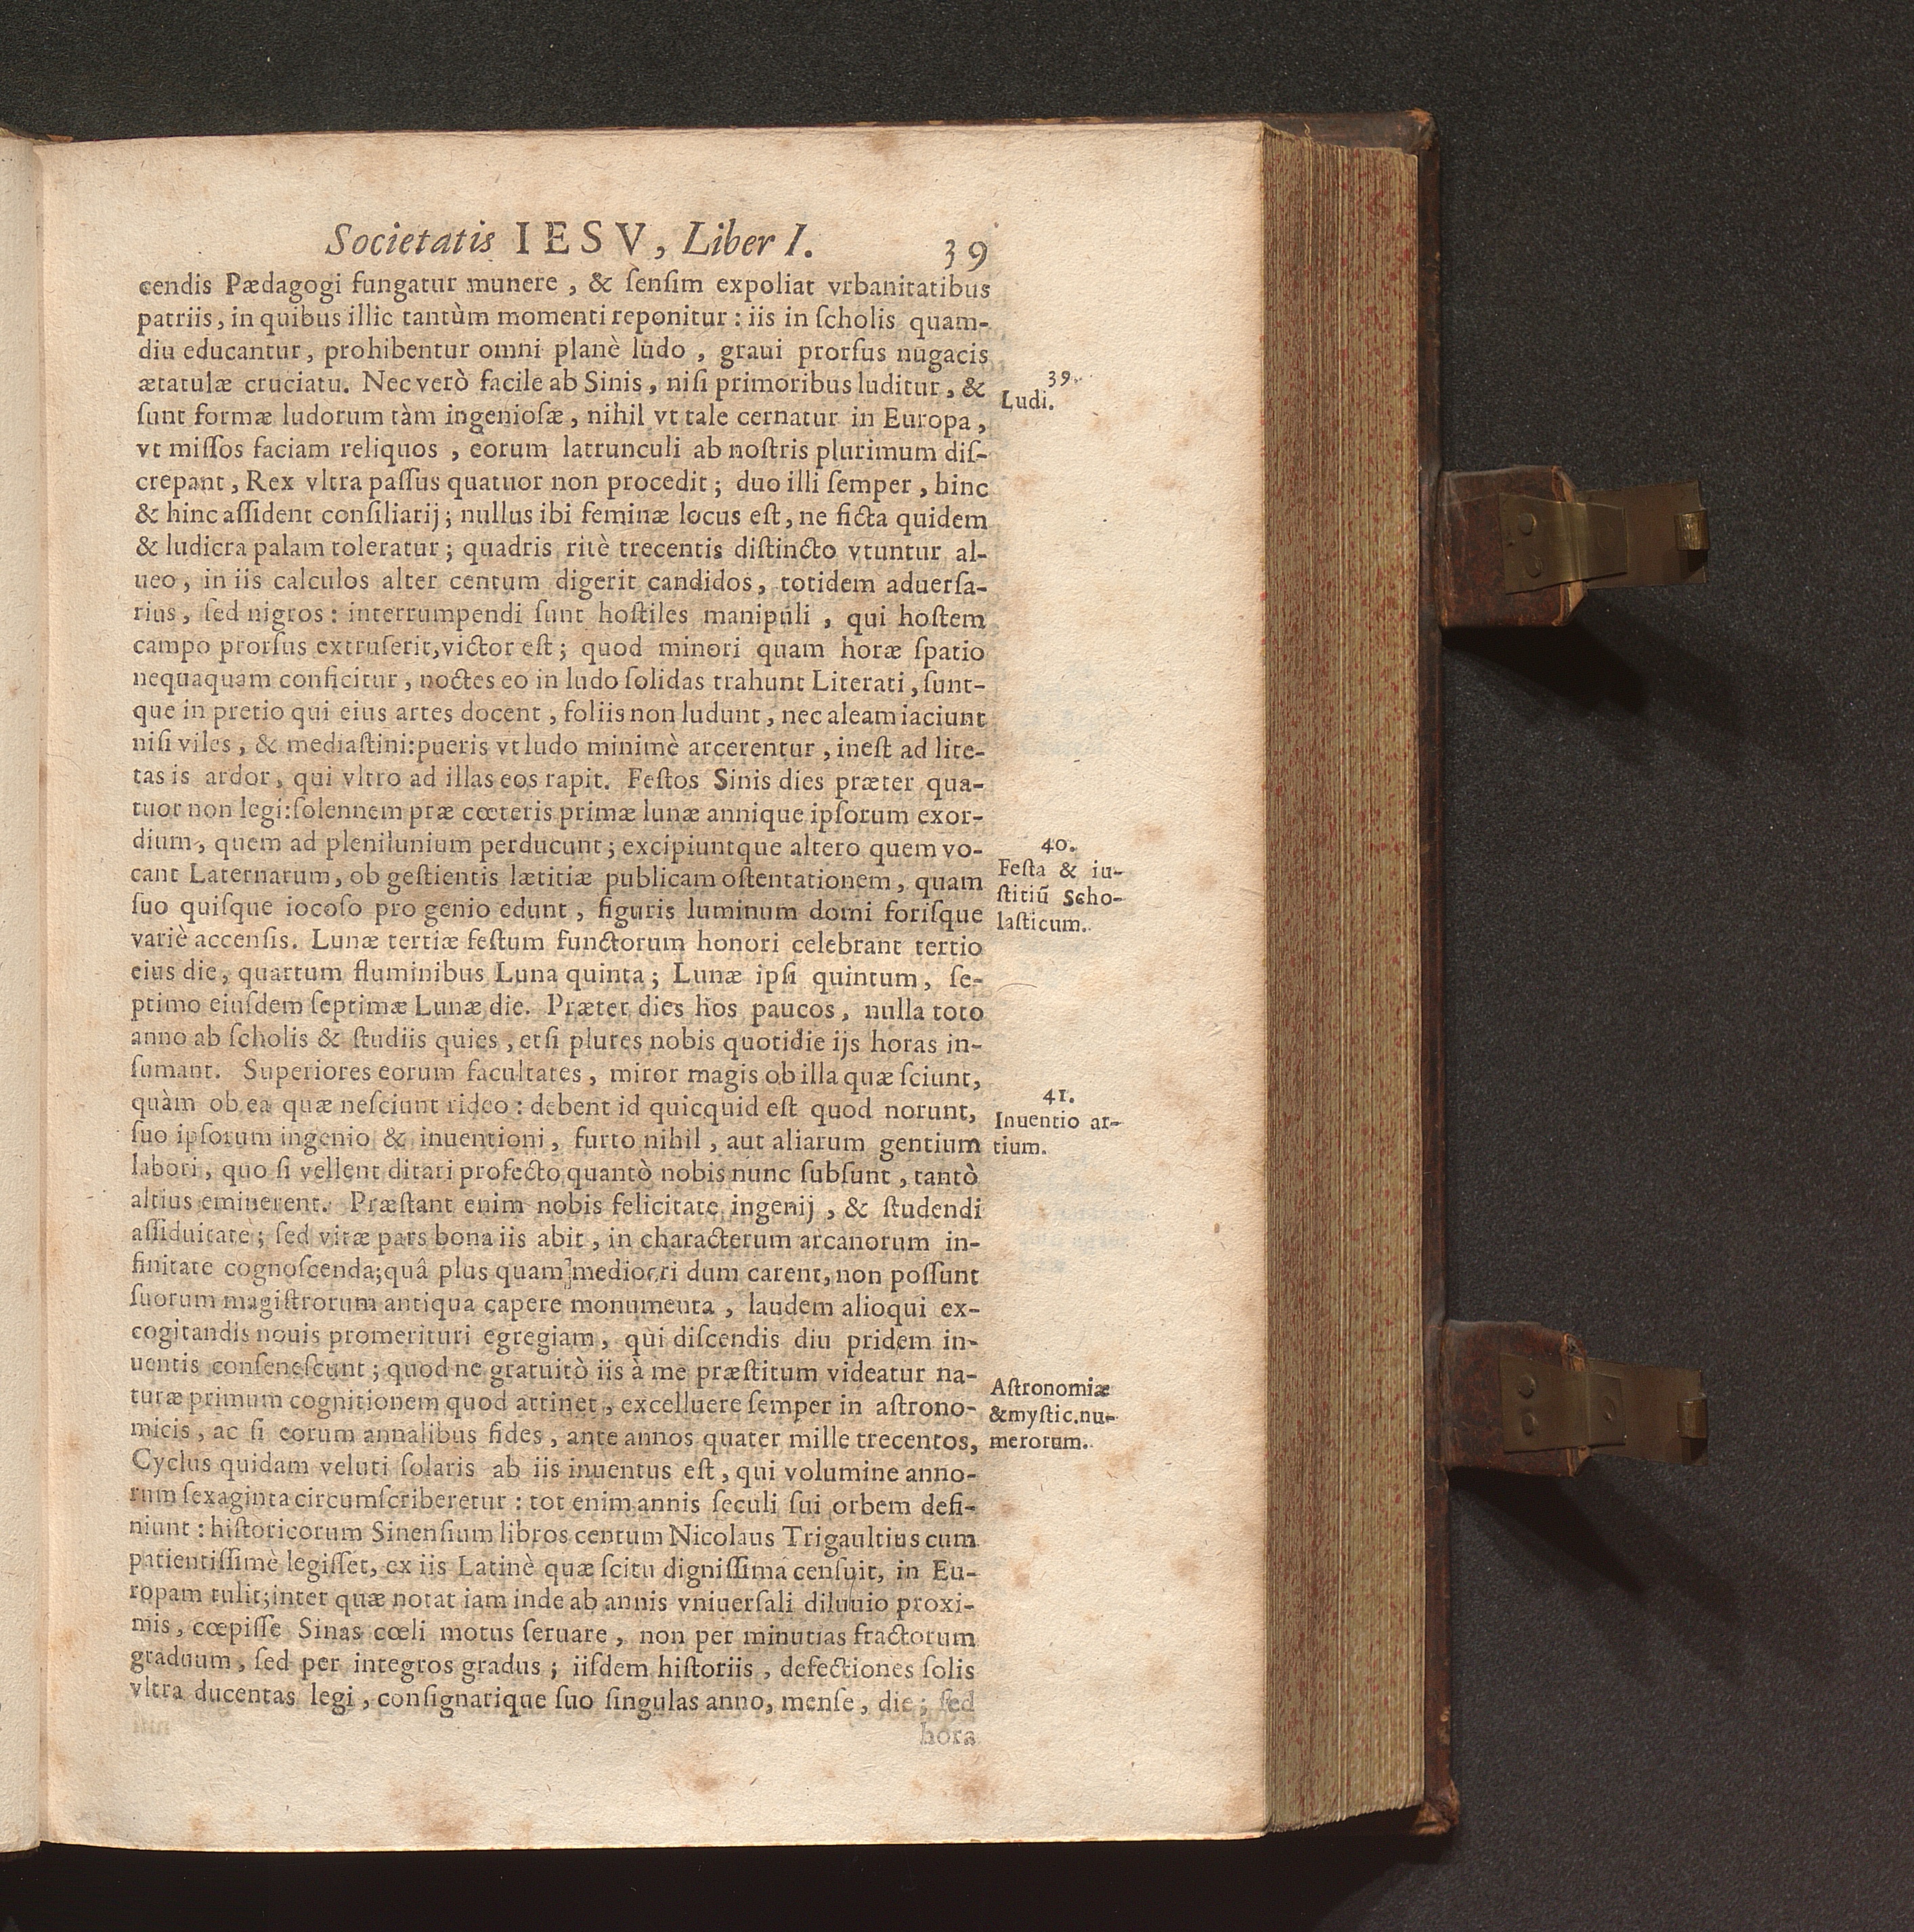 Societatis IESV, Liber I. 39
cendis Pædagogi fungatur munere, & ſenſim expoliat vrbanitatibus
patriis, in quibus illic tantùm momenti reponitur: iis in ſcholis quam-
diu educantur, prohibentur omni planè ludo, graui prorſus nugacis
ætatulæ cruciatu. Nec verò facile ab Sinis, niſi primoribus luditur, &
39.
Ludi.
ſunt formæ ludorum tàm ingenioſæ, nihil vt tale cernatur in Europa,
vt miſſos faciam reliquos, eorum latrunculi ab noſtris plurimum diſ-
crepant, Rex vltra paſſus quatuor non procedit; duo illi ſemper, hinc
& hinc aſſident conſiliarij; nullus ibi feminæ locus eſt, ne ficta quidem
& ludicra palam toleratur; quadris ritè trecentis diſtincto vtuntur al-
ueo, in iis calculos alter centum digerit candidos, totidem aduerſa-
rius, ſed nigros: interrumpendi ſunt hoſtiles manipuli, qui hoſtem
campo prorſus extruſerit, victor eſt; quod minori quam horæ ſpatio
nequaquam conficitur, noctes eo in ludo ſolidas trahunt Literati, ſunt-
que in pretio qui eius artes docent, foliis non ludunt, nec aleam iaciunt
niſi viles, & mediaſtini: pueris vt ludo minimè arcerentur, ineſt ad lite-
tas is ardor, qui vltro ad illas eos rapit. Feſtos Sinis dies præter qua-
tuor non legi: ſolennem præ cœteris primæ lunæ annique ipſorum exor-
dium, quem ad plenilunium perducunt; excipiuntque altero quem vo-
40.
Feſta & iu-
ſtitiũ Scho-
laſticum.
cant Laternarum, ob geſtientis lætitiæ publicam oſtentationem, quam
ſuo quiſque iocoſo pro genio edunt, figuris luminum domi foriſque
variè accenſis. Lunæ tertiæ feſtum functorum honori celebrant tertio
eius die, quartum fluminibus Luna quinta; Lunæ ipſi quintum, ſe-
ptimo eiuſdem ſeptimæ Lunæ die. Præter dies hos paucos, nulla toto
anno ab ſcholis & ſtudiis quies, etſi plures nobis quotidie ijs horas in-
ſumant. Superiores eorum facultates, miror magis ob illa quæ ſciunt,
quàm ob ea quæ neſciunt rideo: debent id quicquid eſt quod norunt,
41.
Inuentio ar-
tium.
ſuo ipſorum ingenio & inuentioni, furto nihil, aut aliarum gentium
labori, quo ſi vellent ditari profecto, quantò nobis nunc ſubſunt, tantò
altius eminerent. Præſtant enim nobis felicitate ingenij, & ſtudendi
aſſiduitate; ſed vitæ pars bona iis abit, in characterum arcanorum in-
finitate cognoſcenda; quâ plus quam mediocri dum carent, non poſſunt
ſuorum magiſtrorum antiqua capere monumenta, laudem alioqui ex-
cogitandis nouis promerituri egregiam, qui diſcendis diu pridem in-
uentis conſeneſcunt; quod ne gratuitò iis à me præſtitum videatur na-
turæ primum cognitionem quod attinet, excelluere ſemper in aſtrono-
Aſtronomiæ
& myſtic. nu-
merorum.
micis, ac ſi eorum annalibus fides, ante annos quater mille trecentos,
Cyclus quidam veluti ſolaris ab iis inuentus eſt, qui volumine anno-
rum ſexaginta circumſcriberetur: tot enim annis ſeculi ſui orbem defi-
niunt: hiſtoricorum Sinenſium libros centum Nicolaus Trigaultius cum
patientiſſimè legiſſet, ex iis Latinè quæ ſcitu digniſſima cenſuit, in Eu-
ropam tulit; inter quæ notat iam inde ab annis vniuerſali diluuio proxi-
mis, cœpiſſe Sinas cœli motus ſeruare, non per minutias fractorum
graduum, ſed per integros gradus; iiſdem hiſtoriis, defectiones ſolis
vltra ducentas legi, conſignatique ſuo ſingulas anno, menſe, die; ſed
hora